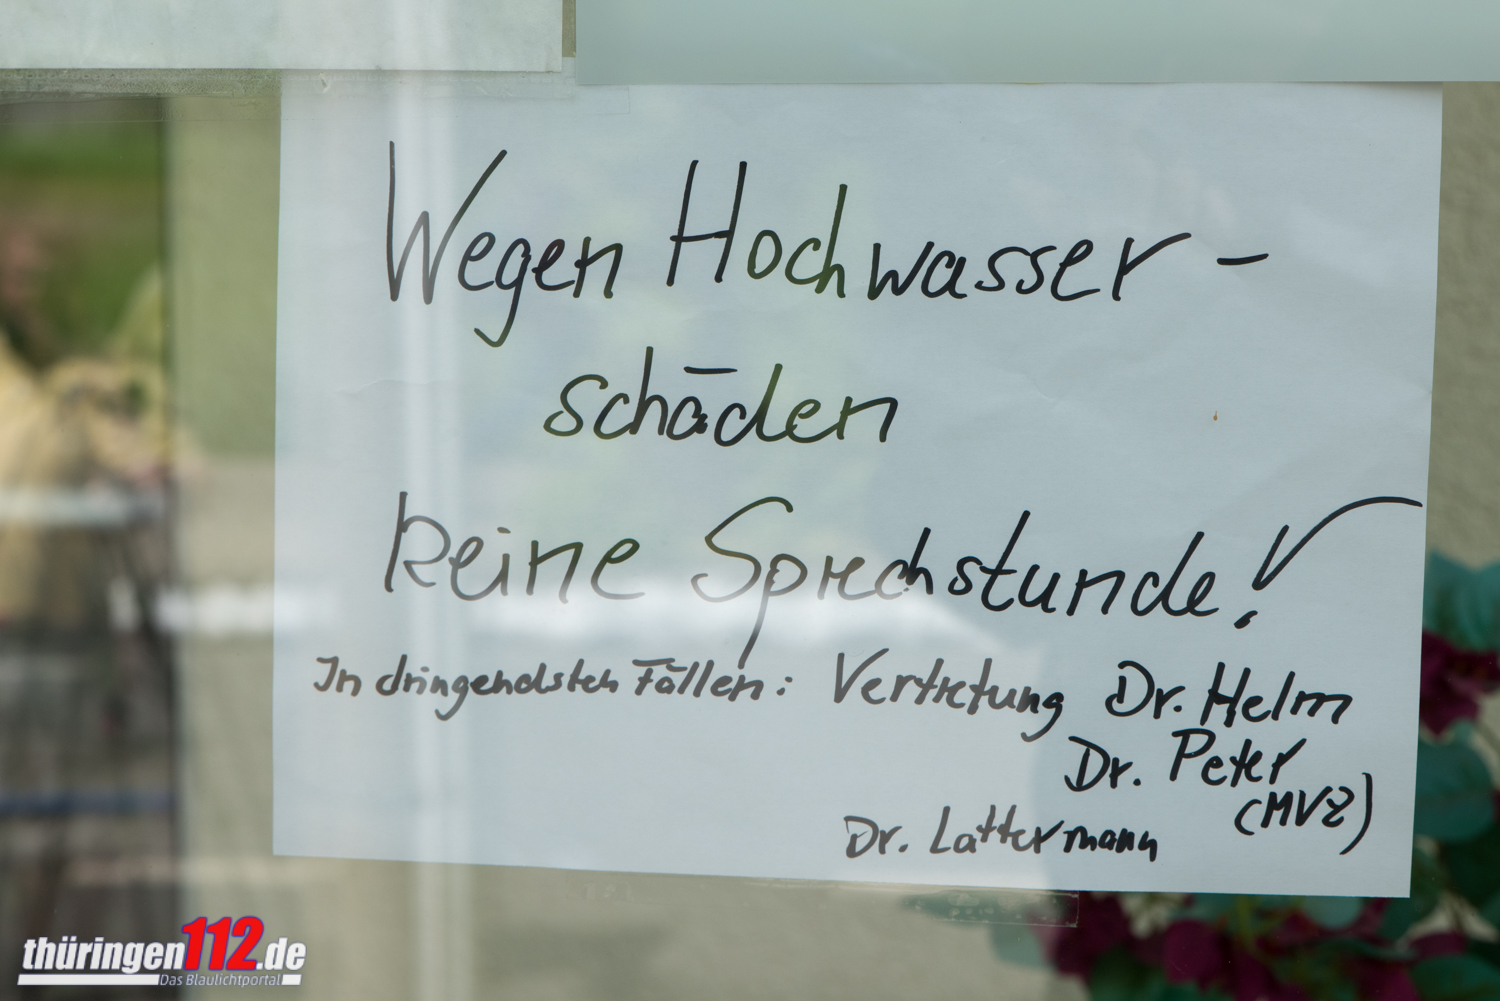 Wegen Hochwasser-
schäden
keine Sprechstunde!
In dringendsten Fällen: Vertretung Dr. Helm
Dr. Peter
(MVZ)
Dr. Lattermann
thüringen112.de
Das Blaulichtportal